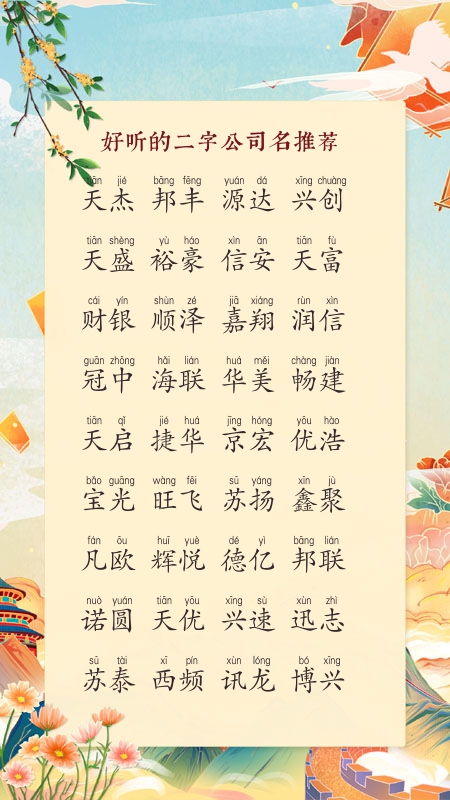 好听的二字公司名推荐
tiān jié bāng fēng yuán dá xīng chuàng
天杰 邦丰 源达 兴创
tiān shèng yù háo xìn ān tiān fù
天盛 裕豪 信安 天富
cái yín shùn zé jiā xiáng rùn xìn
财银 顺泽 嘉翔 润信
guān zhōng hǎi lián huá měi chàng jiàn
冠中 海联 华美 畅建
tiān qǐ jié huá jīng hóng yōu hào
天启 捷华 京宏 优浩
bǎo guāng wàng fēi sū yáng xīn jù
宝光 旺飞 苏扬 鑫聚
fán ōu huī yuè dé yì bāng lián
凡欧 辉悦 德亿 邦联
nuò yuán tiān yōu xīng sù xùn zhì
诺圆 天优 兴速 迅志
sū tài xī pín xùn lóng bó xīng
苏泰 西频 讯龙 博兴